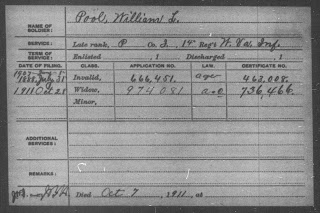 NAME OF SOLDIER: Pool, William L.
SERVICE: Late rank, P Co. I, 14" Reg't W. Va. Inf.
TERM OF SERVICE: Enlisted , 1 Discharged , 1
DATE OF FILING. CLASS. APPLICATION NO. LAW. CERTIFICATE NO.
1888, July 31 Invalid, 666,451. age 463,008.
1911 Oct 28 Widow, 974081 736,466.
Minor,
ADDITIONAL SERVICES:
REMARKS:
Died Oct 7, 1911, at